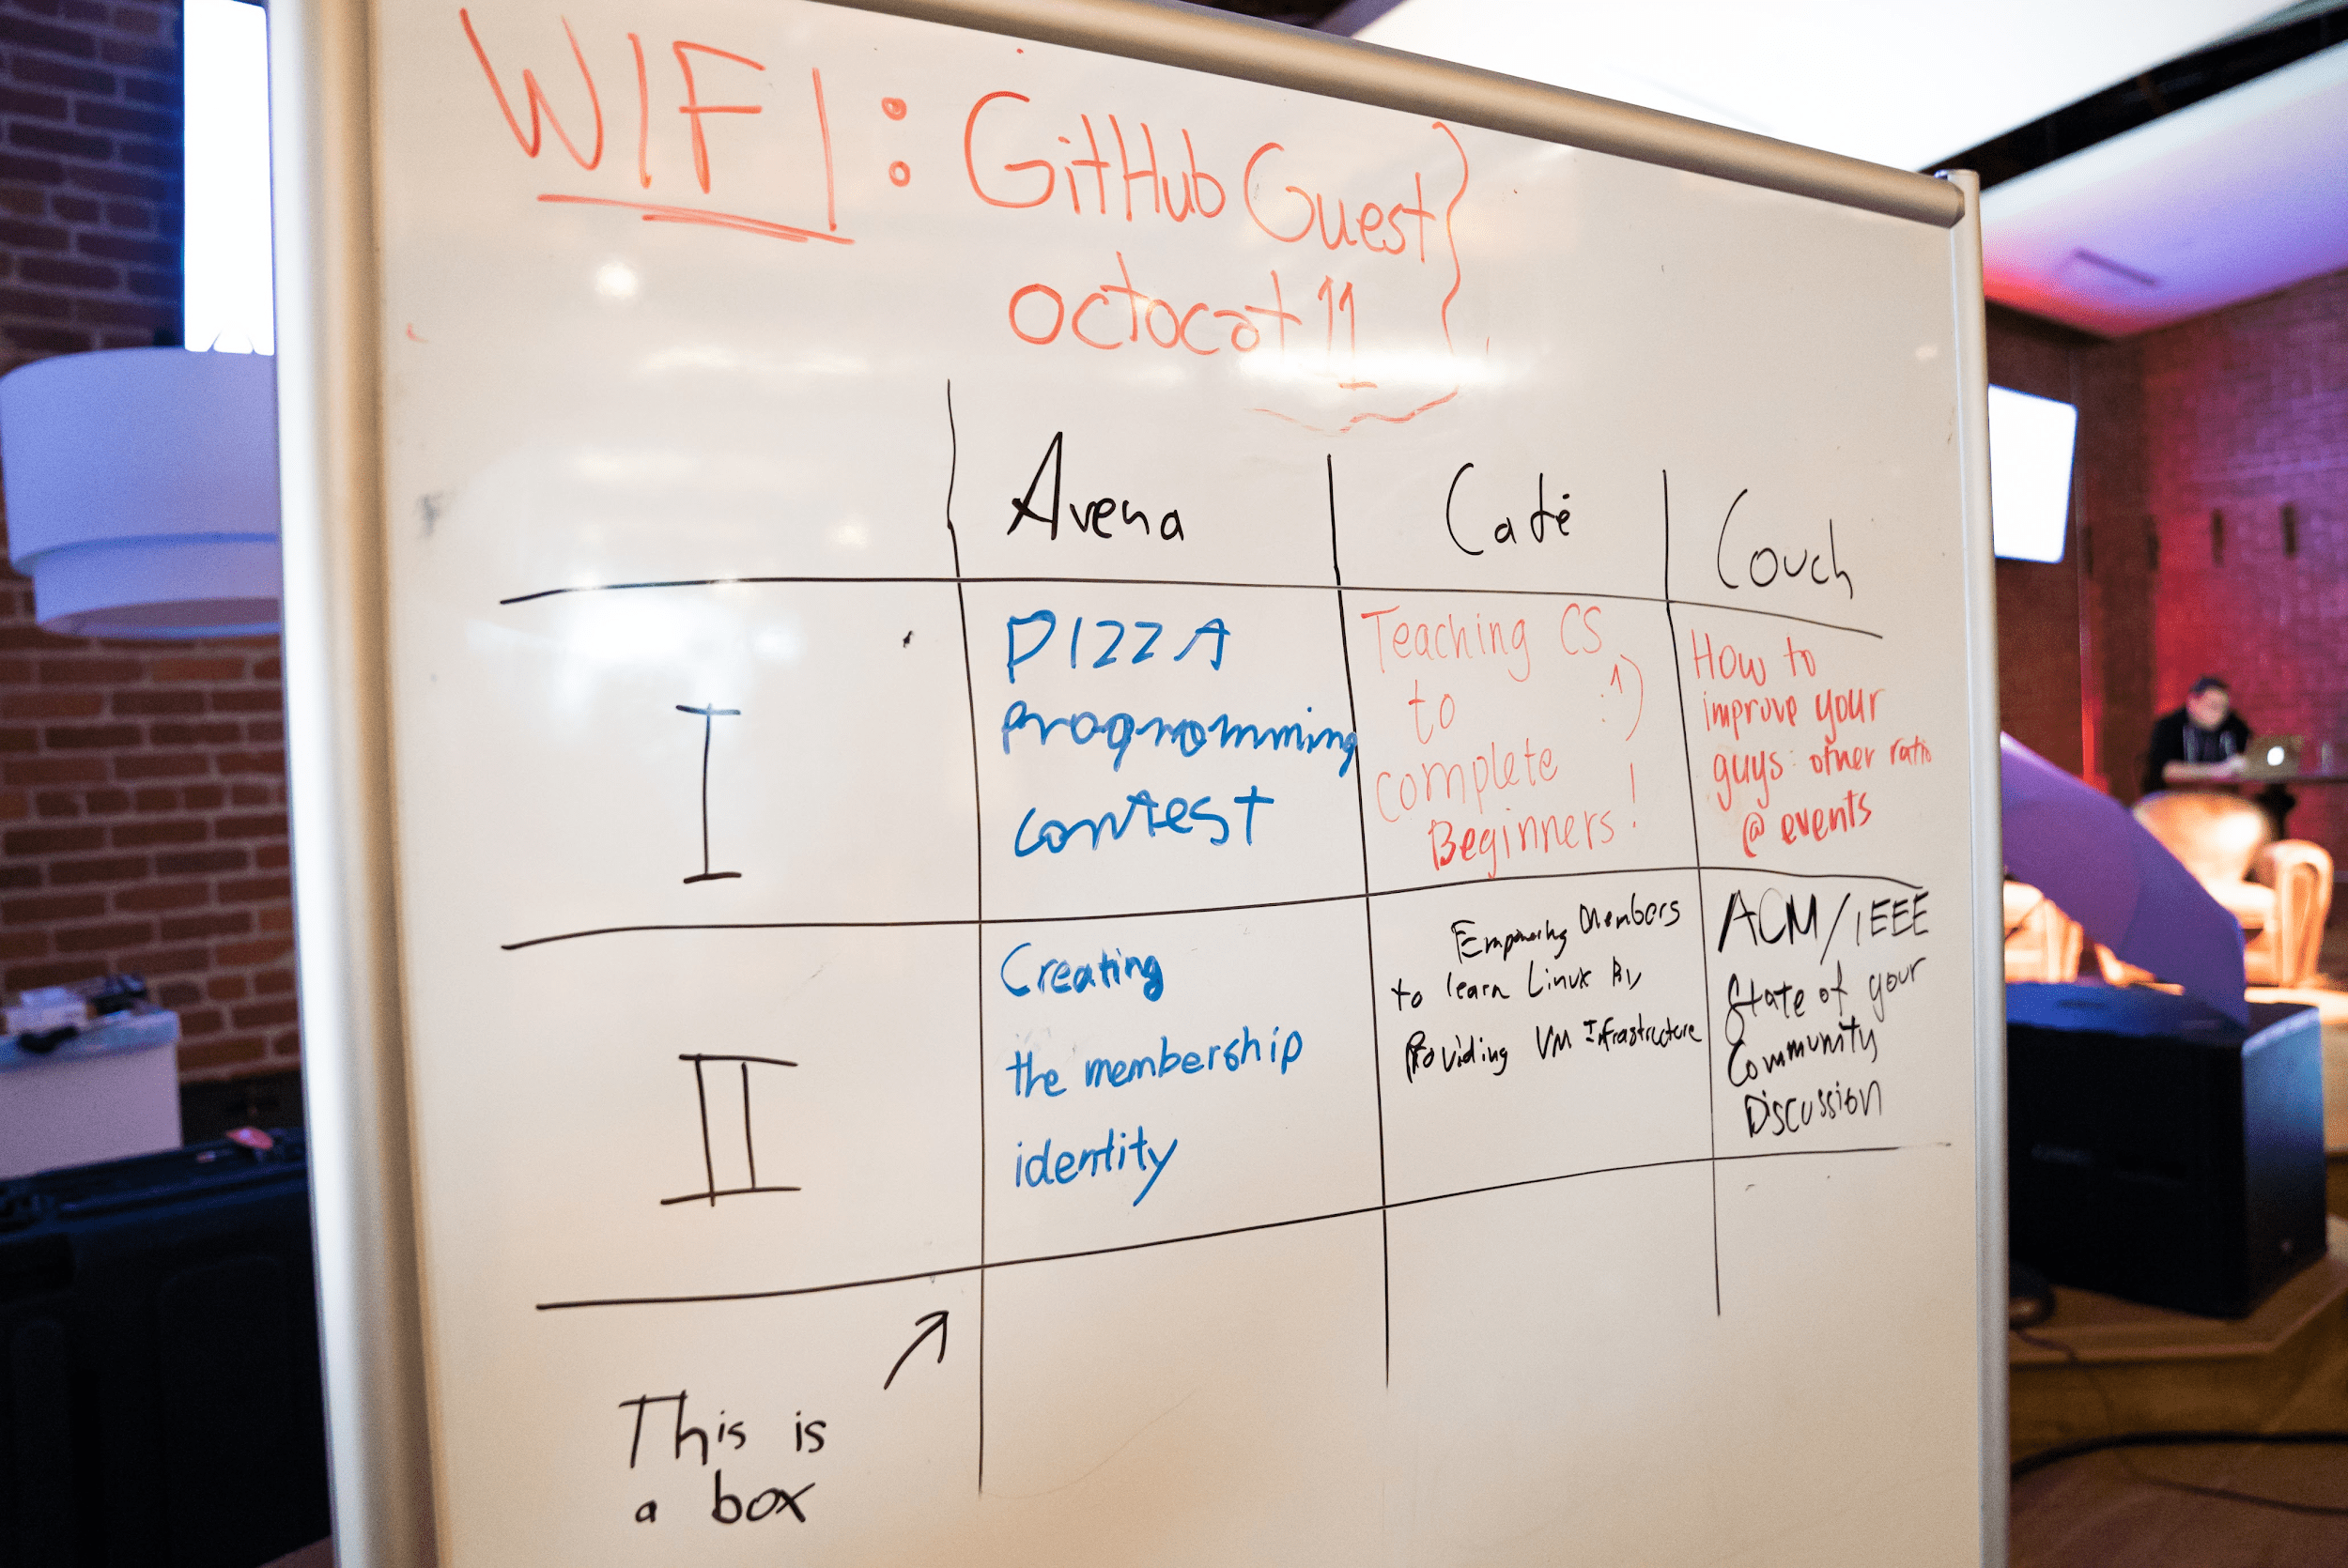 WIFI: GitHub Guest
octocat11
Arena
Café
Couch
I
PIZZA
Programming
contest
Teaching CS
to :')
complete
Beginners!
How to
improve your
guys: other ratio
@ events
II
Creating
the membership
identity
Empowering Members
to learn Linux By
Providing VM Infrastructure
ACM/IEEE
State of your
Community
Discussion
This is
a box